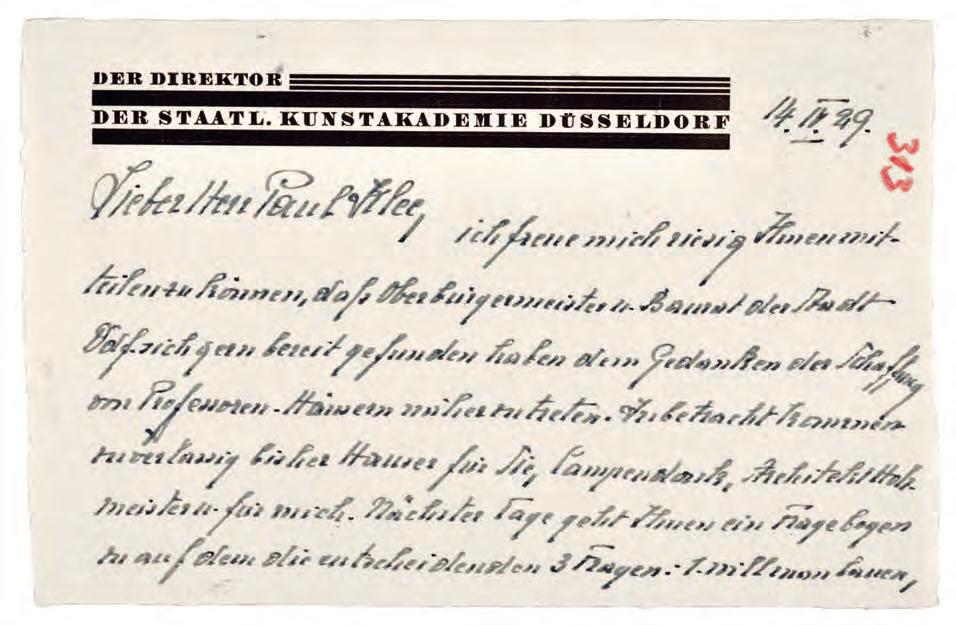 DER DIREKTOR
DER STAATL. KUNSTAKADEMIE DÜSSELDORF
14. IV. 29.
313
Lieber Herr Paul Klee,
ich freue mich riesig Ihnen mit-
teilen zu können, daß Oberbürgermeister u. Baurat der Stadt
Ddf. sich gern bereit gefunden haben dem Gedanken der Schaffung
von Professoren-Häusern näher zu treten. In betracht kommen
zuverlässig bisher Häuser für Sie, Campendonk, Architekt Holz-
meister u. für mich. Nächster Tage geht Ihnen ein Fragebogen
zu auf dem die entscheidenden 3 Fragen: 1. will man bauen,